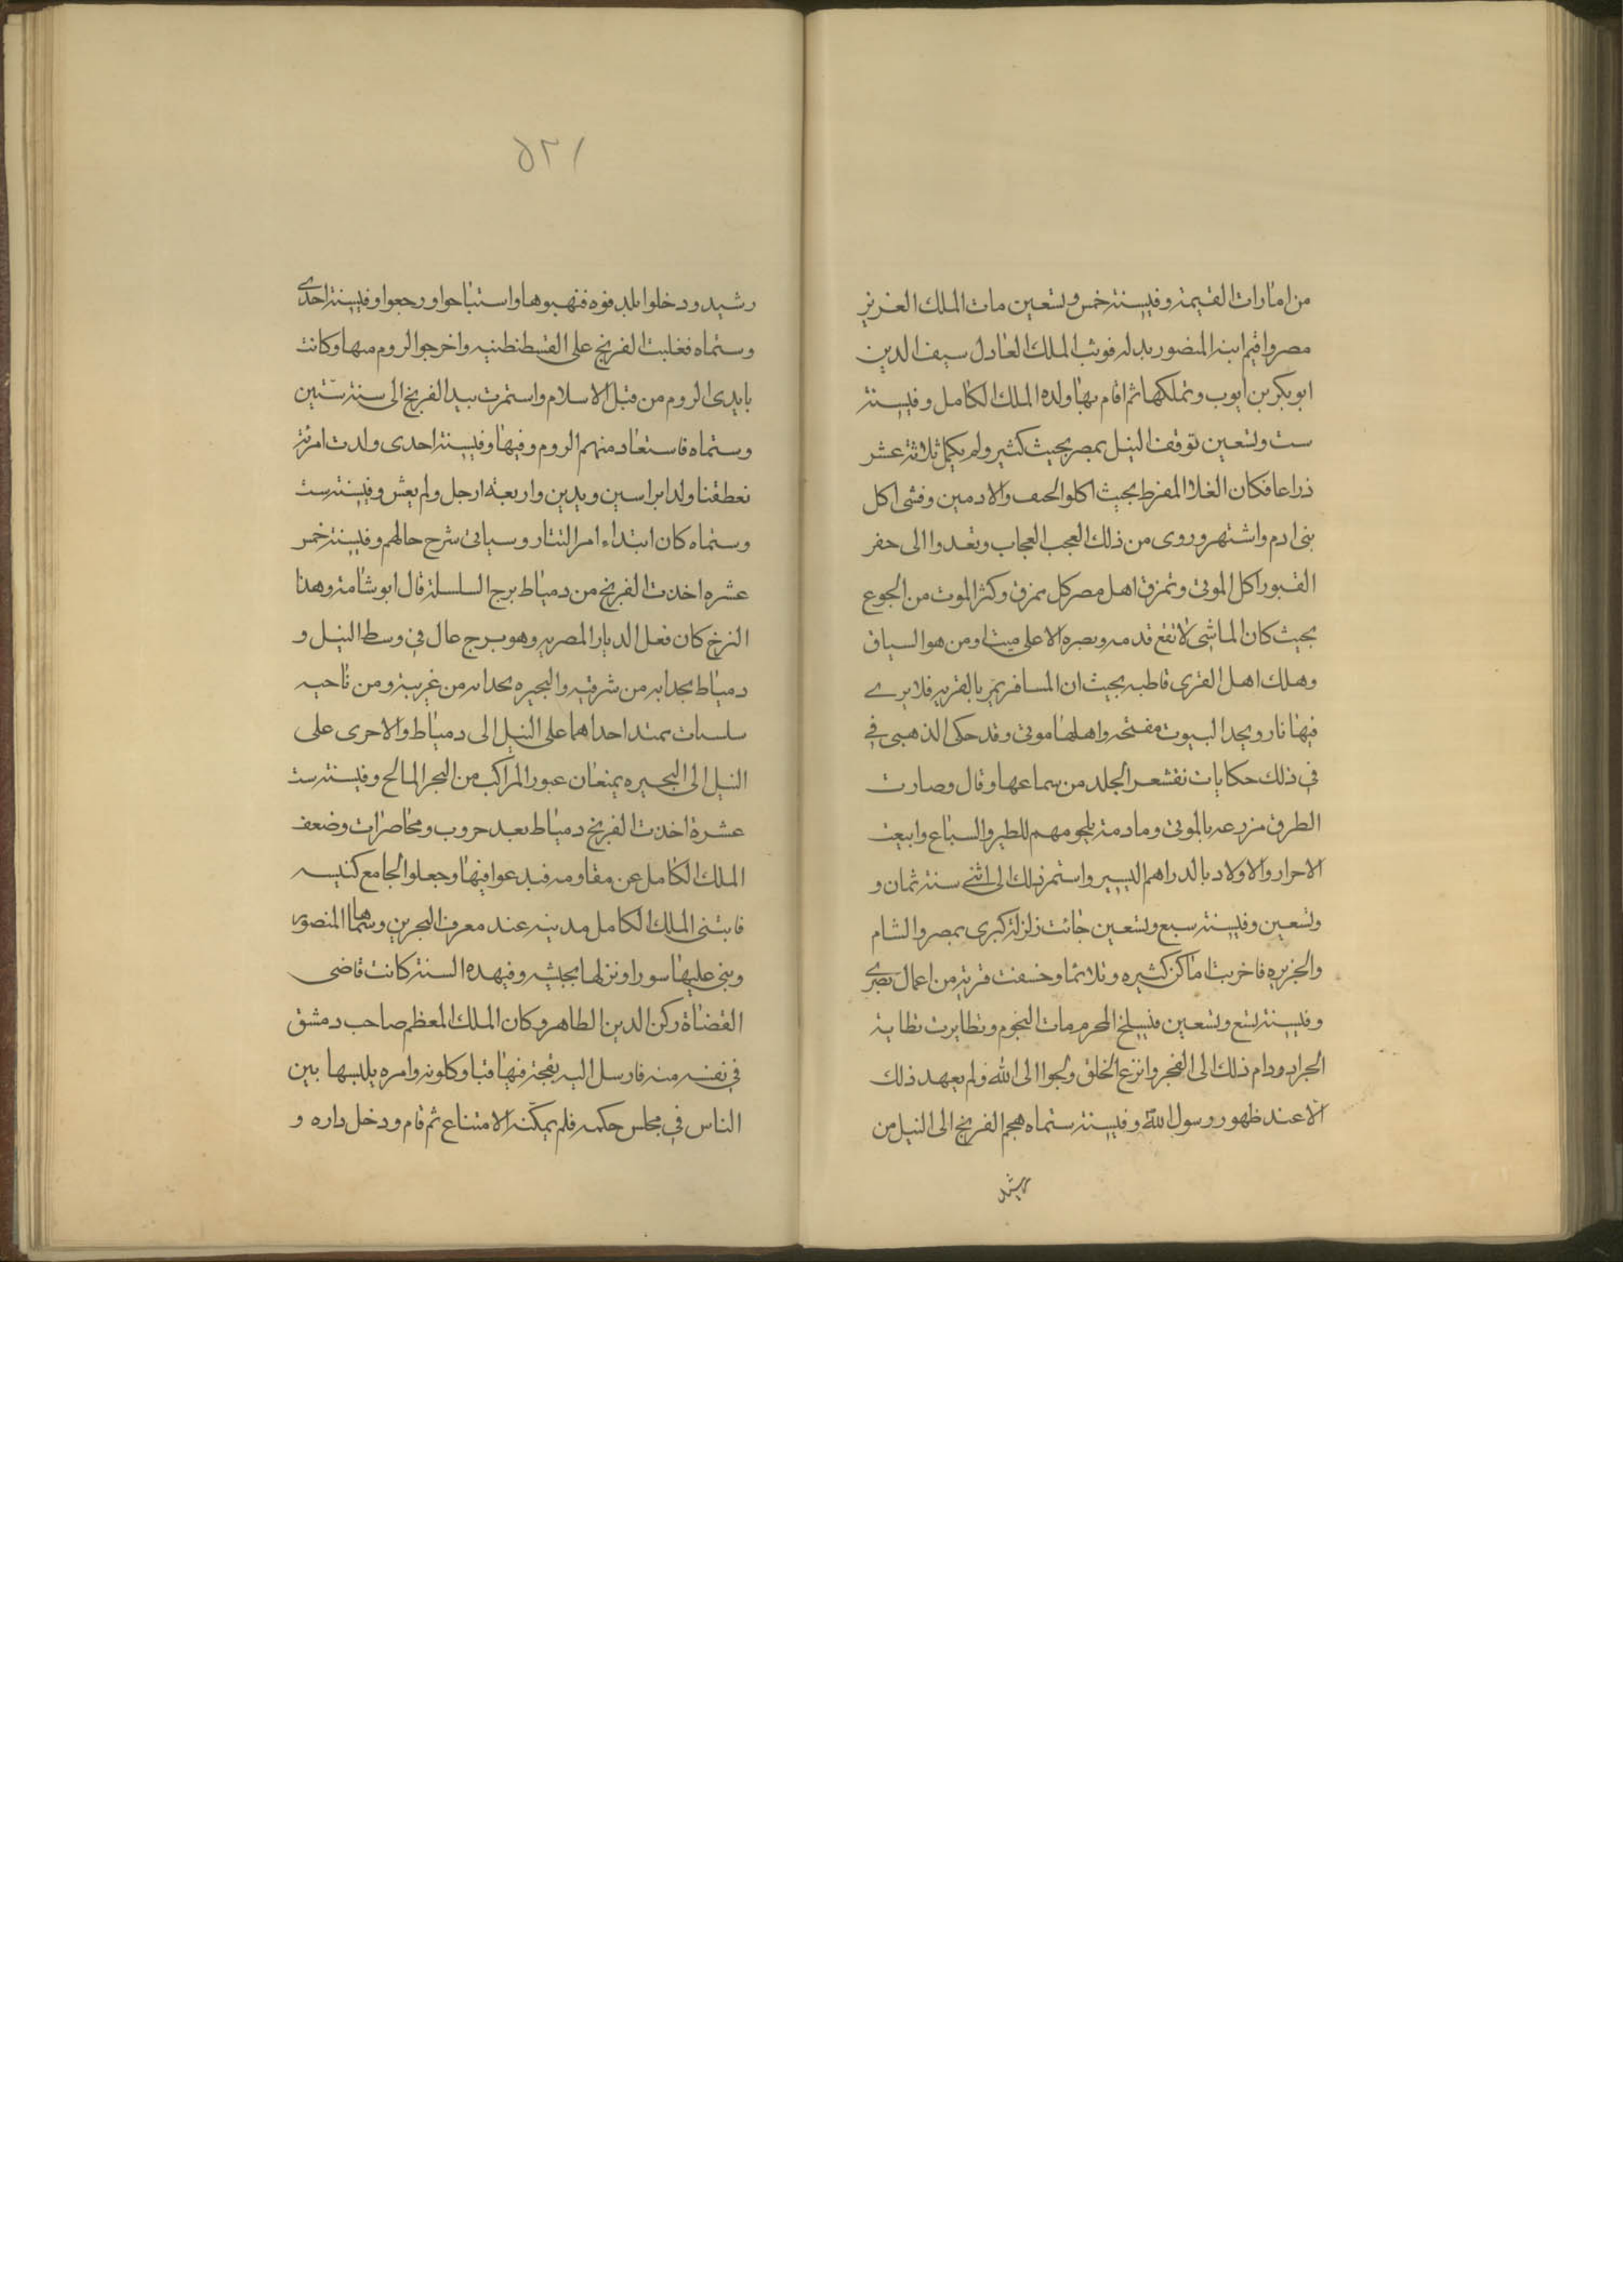 من امارات القيمة وفيسنة خمس وتسعين مات الملك العزيز
مصر واقيم ابنه المنصور بدله فوثب الملك العادل سيف الدين
ابو بكر بن ايوب وتملكها ثم اقام بها ولده الملك الكامل وفيسنة
ست وتسعين توقف النيل بمصر بحيث كثير ولم يكمل ثلاثة عشر
ذراعا فكان الغلا المفرط بحيث اكلوا الجيف والادمين وفشى اكل
بنى ادم واشتهر وروى من ذلك العجب العجاب وتعدوا الى حفر
القبور اكل الموتى وتمزق اهل مصر كل ممزق وكثر الموت من الجوع
بحيث كان الماشى لا تقع قدمه وبصره الا على ميت او من هو السياق
وهلك اهل القرى قاطبه بحيث ان المسافر يمر بالقريه فلا يرى
فيها نار ويجد البيوت مفتحه واهلها موتى وقد حكى الذهبى في
في ذلك حكايات تقشعر الجلد من سماعها وقال وصارت
الطرق مزرعه بالموتى ومادمة بلحومهم للطير والسباع وابيعت
الاحرار والاولاد بالدراهم اليسير واستمر ذلك الى اثنى سنة ثمان و
وتسعين وفيسنة سبع وتسعين جائت زلزلة كبرى بمصر والشام
والجزيره فاخربت اماكن كثيره وقلائما وخسفت قرية من اعمال بصرى
وفيسنة تسع وتسعين فيسلخ المحرم مات النجوم وتطايرت تطاية
الجراد ودام ذلك الى الفجر وانزع الخلق ولجوا الى الله ولم يعهد ذلك
الا عند ظهور رسول الله وفيسنة ستماه هجم الفرنج الى النيل من
رشيد
١٢٥
رشيد ودخلوا بلد فوه فنهبوها واستباحوا ورجعوا وفيسنة احدى
وستماه فغلبت الفرنج على القسطنطنيه واخرجوا الروم منها وكانت
بايدى الروم من قبل الاسلام واستمرت بيد الفرنج الى سنة ستين
وستماه فاستعاد منهم الروم وفيها وفيسنة احدى ولدت امرئة
نعطقنا ولدا براسين ويدين واربعه ارجل ولم يعش وفيسنة ست
وستماه كان ابتداء امر التتار وسياتى شرح حالهم وفيسنة خمس
عشره اخذت الفرنج من دمياط برج السلسلة قال ابو شامة وهذا
البرج كان فعل الديار المصريه وهو برج عال في وسط النيل و
دمياط بحدايه من شرقيه والبحيره بحدايه من غربية ومن ناحيه
سلسات يمتد احداهما على النيل الى دمياط والاحرى على
النيل الى البحيره يمنعان عبور المراكب من البحر المالح وفيسنة ست
عشرة اخذت الفرنج دمياط بعد حروب ومحاصرات وضعف
الملك الكامل عن مقاومه فبدعوا فيها وجعلوا الجامع كنيسه
فابتنى الملك الكامل مدينه عند معرف البحرين وسماها المنصوره
وبنى عليها سورا ونزلها بجيشه وفيهده السنة كانت قاضى
القضاة ركن الدين الطاهر وكان الملك المعظم صاحب دمشق
في نفسه منه فارسل اليه بقجة فيها قبا وكلونه وامره يلبسها بين
الناس في مجلس حكمه فلم يمكنه الامتناع ثم قام ودخل داره و